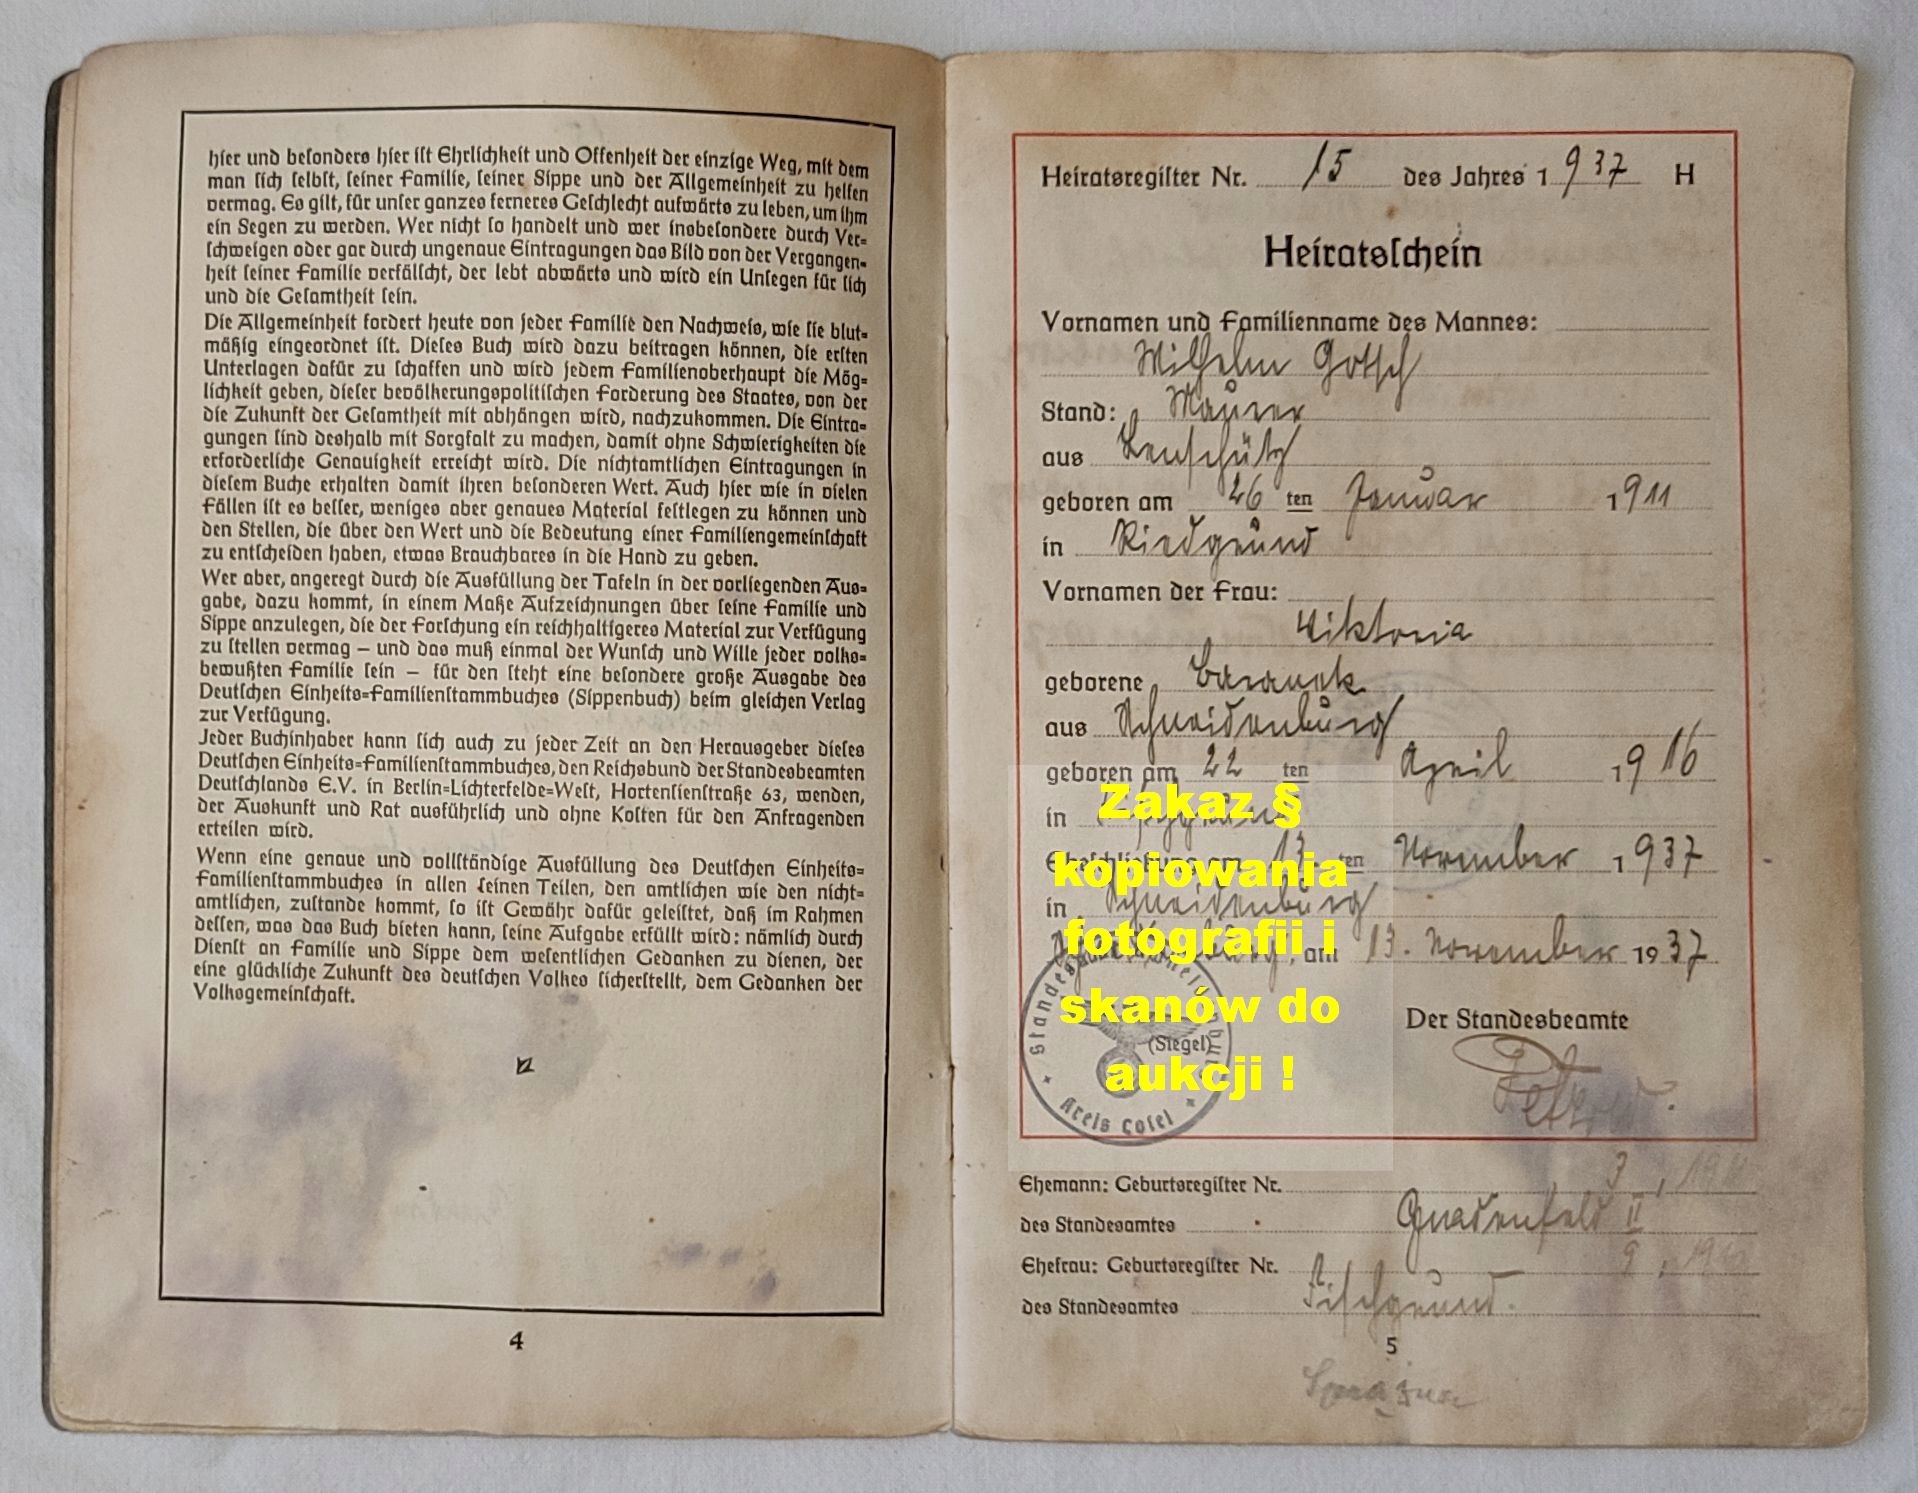 hier und besonders hier ist Ehrlichkeit und Offenheit der einzige Weg, mit dem
man sich selbst, seiner Familie, seiner Sippe und der Allgemeinheit zu helfen
vermag. Es gilt, für unser ganzes ferneres Geschlecht aufwärts zu leben, um ihm
ein Segen zu werden. Wer nicht so handelt und wer insbesondere durch Ver-
schweigen oder gar durch ungenaue Eintragungen das Bild von der Vergangen-
heit seiner Familie verfälscht, der lebt abwärts und wird ein Unsegen für sich
und die Gesamtheit sein.
Die Allgemeinheit fordert heute von jeder Familie den Nachweis, wie sie blut-
mäßig eingeordnet ist. Dieses Buch wird dazu beitragen können, die ersten
Unterlagen dafür zu schaffen und wird jedem Familienoberhaupt die Mög-
lichkeit geben, dieser bevölkerungspolitischen Forderung des Staates, von der
die Zukunft der Gesamtheit mit abhängen wird, nachzukommen. Die Eintra-
gungen sind deshalb mit Sorgfalt zu machen, damit ohne Schwierigkeiten die
erforderliche Genauigkeit erreicht wird. Die nichtamtlichen Eintragungen in
diesem Buche erhalten damit ihren besonderen Wert. Auch hier wie in vielen
Fällen ist es besser, weniges aber genaues Material festlegen zu können und
den Stellen, die über den Wert und die Bedeutung einer Familiengemeinschaft
zu entscheiden haben, etwas Brauchbares in die Hand zu geben.
Wer aber, angeregt durch die Ausfüllung der Tafeln in der vorliegenden Aus-
gabe, dazu kommt, in einem Maße Aufzeichnungen über seine Familie und
Sippe anzulegen, die der Forschung ein reichhaltigeres Material zur Verfügung
zu stellen vermag – und das muß einmal der Wunsch und Wille jeder volks-
bewußten Familie sein – für den steht eine besondere große Ausgabe des
Deutschen Einheits-Familienstammbuches (Sippenbuch) beim gleichen Verlag
zur Verfügung.
Jeder Buchinhaber kann sich auch zu jeder Zeit an den Herausgeber dieses
Deutschen Einheits-Familienstammbuches, den Reichsbund der Standesbeamten
Deutschlands E.V. in Berlin-Lichterfelde-West, Hortensienstraße 63, wenden,
der Auskunft und Rat ausführlich und ohne Kosten für den Anfragenden
erteilen wird.
Wenn eine genaue und vollständige Ausfüllung des Deutschen Einheits-
Familienstammbuches in allen seinen Teilen, den amtlichen wie den nicht-
amtlichen, zustande kommt, so ist Gewähr dafür geleistet, daß im Rahmen
dessen, was das Buch bieten kann, seine Aufgabe erfüllt wird: nämlich durch
Dienst an Familie und Sippe dem wesentlichen Gedanken zu dienen, der
eine glückliche Zukunft des deutschen Volkes sicherstellt, dem Gedanken der
Volksgemeinschaft.
4
Heiratsregister Nr. 15 des Jahres 1937 H
Heiratsschein
Vornamen und Familienname des Mannes:
Wilhelm Gotsch
Stand: Maurer
aus Lenschütz
geboren am 26 ten Januar 1911
in Riedgrund
Vornamen der Frau:
Viktoria
geborene Baranek
aus Schneidenburg
geboren am 22 ten April 1916
in
Eheschließung am 13. ten November 1937
in Schneidenburg
Schneidenburg, am 13. November 1937
Der Standesbeamte
(Siegel)
Standesamt Schneidenburg
Kreis Cosel
Zakaz §
kopiowania
fotografii i
skanów do
aukcji !
Ehemann: Geburtsregister Nr. 3, 1911
des Standesamtes Gnadenfeld II
Ehefrau: Geburtsregister Nr. 9,
des Standesamtes Fischgrund.
5